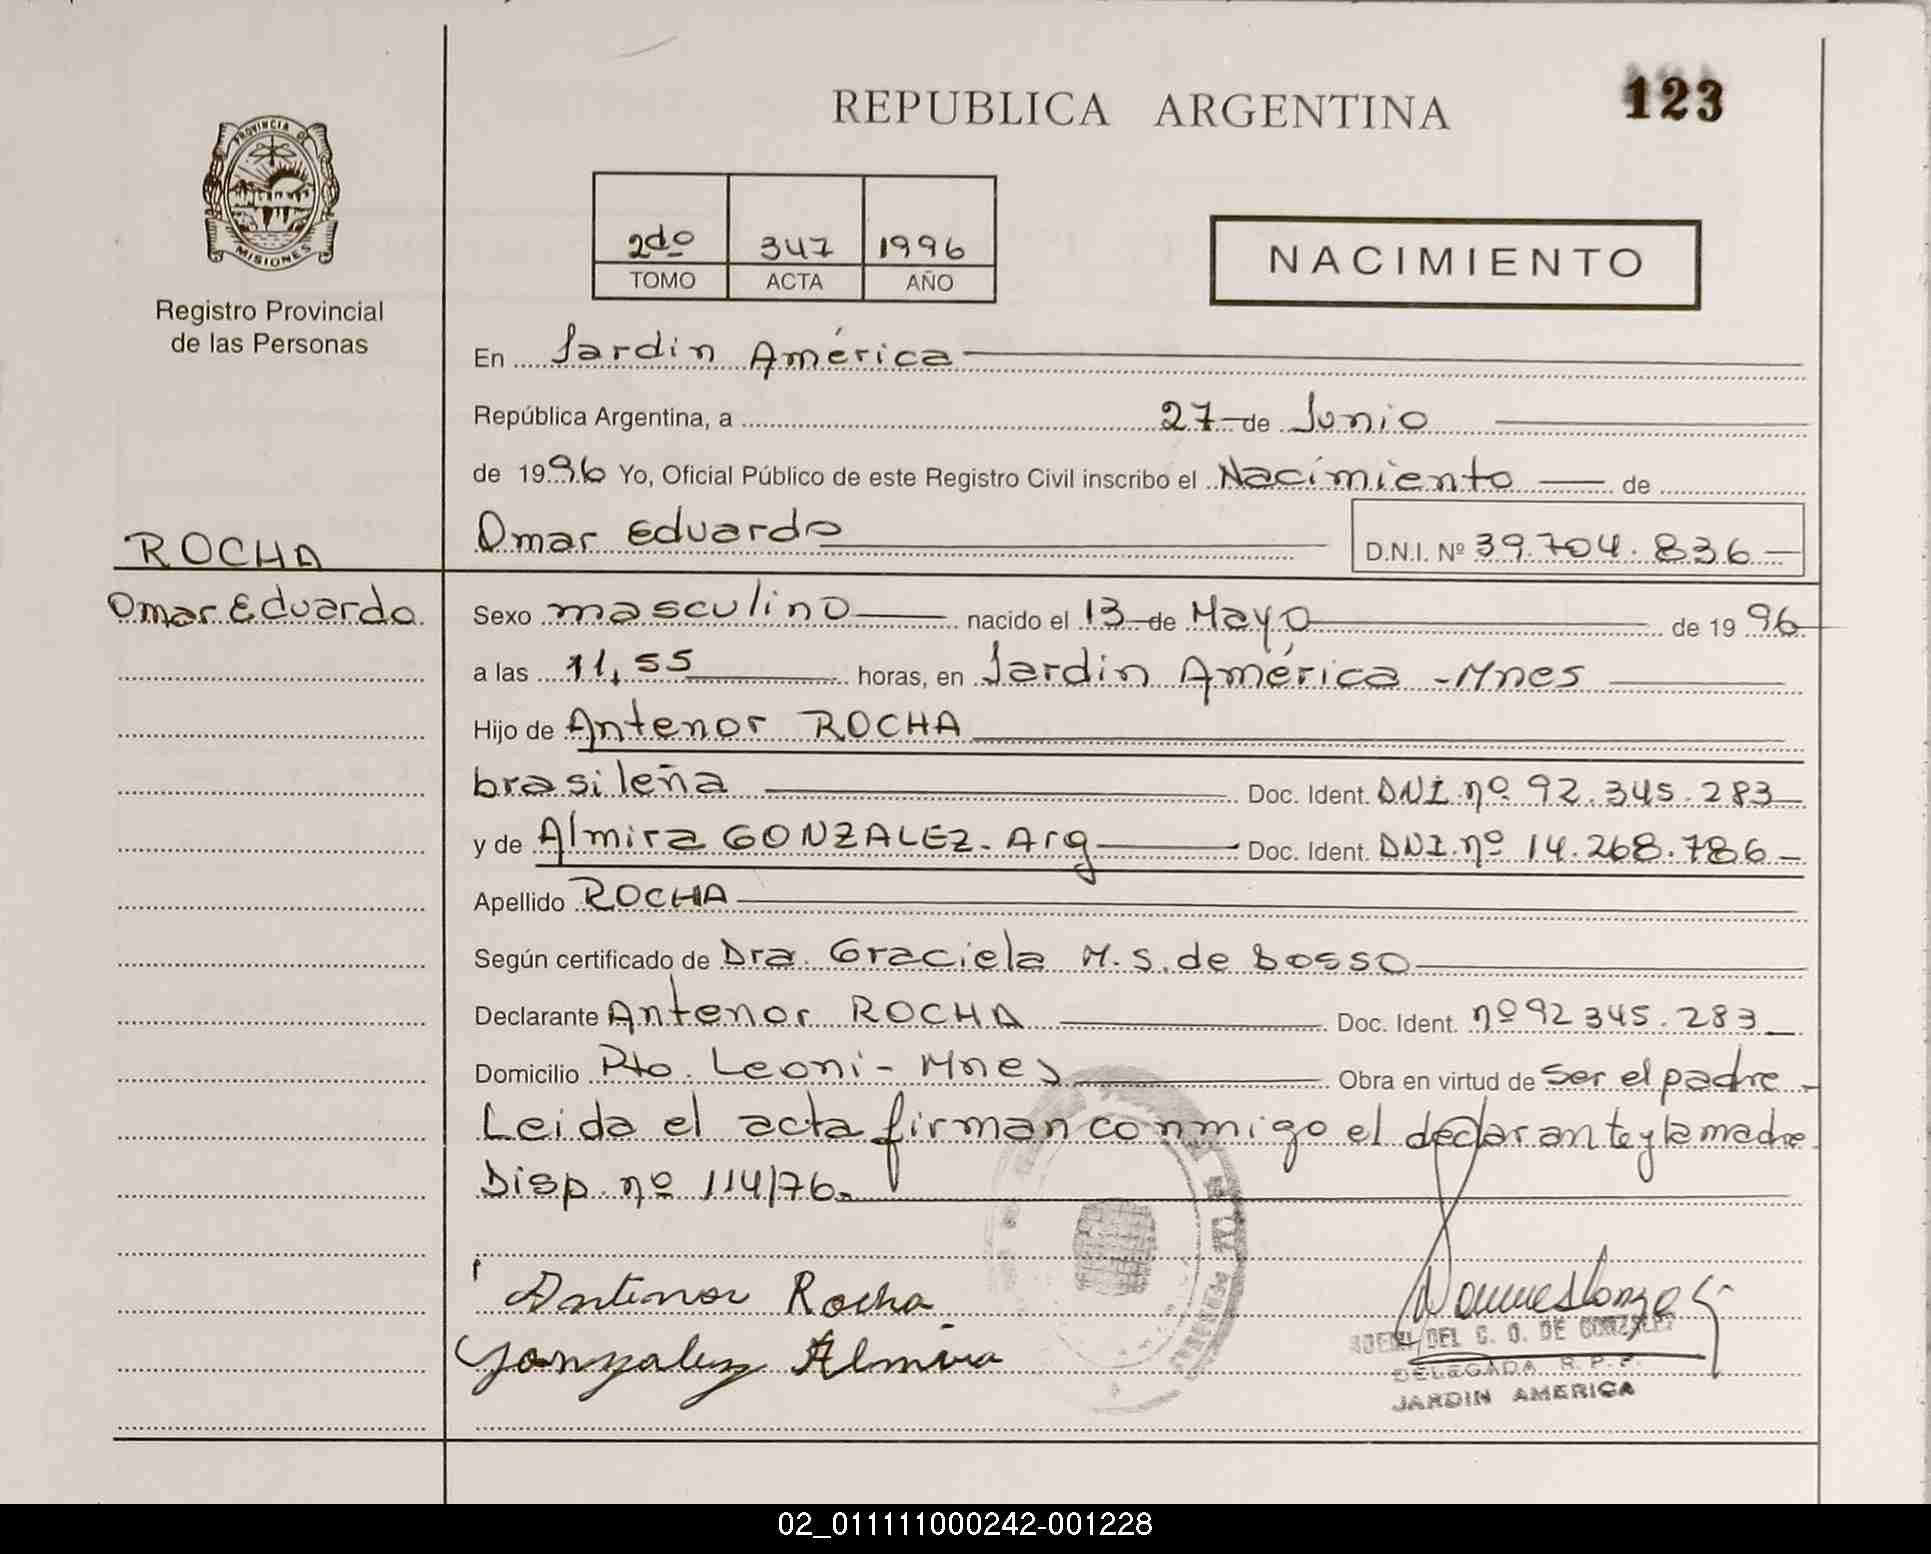 REPUBLICA ARGENTINA
123
PROVINCIA DE
MISIONES
Registro Provincial
de las Personas
2do 347 1996
TOMO ACTA AÑO
NACIMIENTO
En Jardin América
República Argentina, a 27 de Junio
de 1996 Yo, Oficial Público de este Registro Civil inscribo el Nacimiento de
Omar Eduardo D.N.I. Nº 39.704.836
ROCHA
Omar Eduardo
Sexo masculino nacido el 13 de Mayo de 1996
a las 11,55 horas, en Jardin América - Mnes
Hijo de Antenor ROCHA
brasileña Doc. Ident. DNI. nº 92.345.283
y de Almira GONZALEZ. Arg Doc. Ident. DNI. nº 14.268.786
Apellido ROCHA
Según certificado de Dra. Graciela M.S. de Bosso
Declarante Antenor ROCHA Doc. Ident. nº 92 345.283
Domicilio Pto. Leoni - Mnes Obra en virtud de ser el padre
Leida el acta firman conmigo el declarante y la madre
Disp. nº 114/76.
Antenor Rocha
Gonzalez Almira
DEL C. O. DE GONZALEZ
DELEGADA R.P.P.
JARDIN AMERICA
02_011111000242-001228